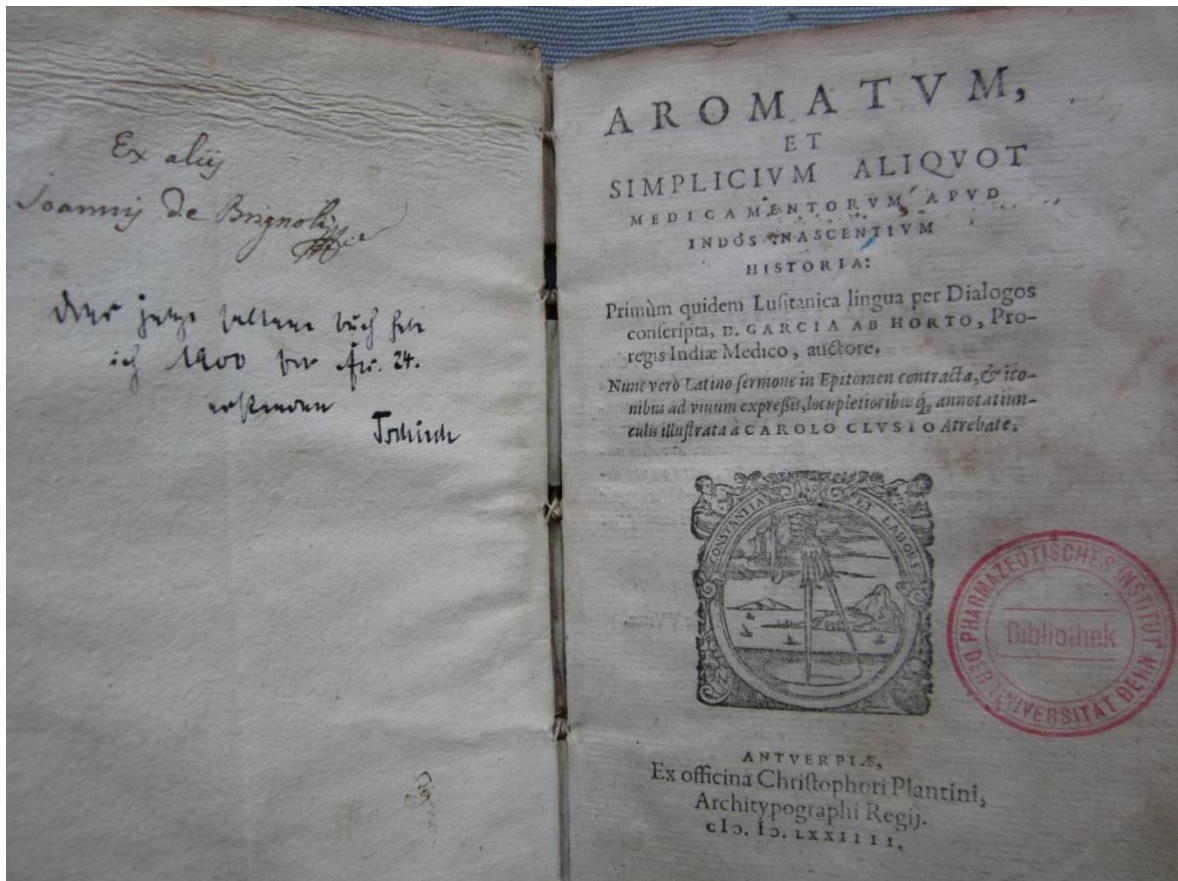 Ex aliis
Joannis de Brignoli
Dies jetzt seltene Buch habe
ich 1900 für fr. 24.
erstanden
Tschirch
AROMATVM,
ET
SIMPLICIVM ALIQVOT
MEDICAMENTORVM APVD
INDOS NASCENTIVM
HISTORIA:
Primùm quidem Luſitanica lingua per Dialogos
conſcripta, D. GARCIA AB HORTO, Pro-
regis Indiæ Medico, auctore.
Nunc verò Latino ſermone in Epitomen contracta, & ico-
nibus ad viuum expreßis, locupletioribusq́; annotatiun-
culis illuſtrata à CAROLO CLVSIO Atrebate.
CONSTANTIA ET LABORE
PHARMAZEUTISCHES INSTITUT
Bibliothek
DER UNIVERSITÄT BERN
ANTVERPIÆ,
Ex officina Chriſtophori Plantini,
Architypographi Regij.
cIↃ. IↃ. LXXIIII.